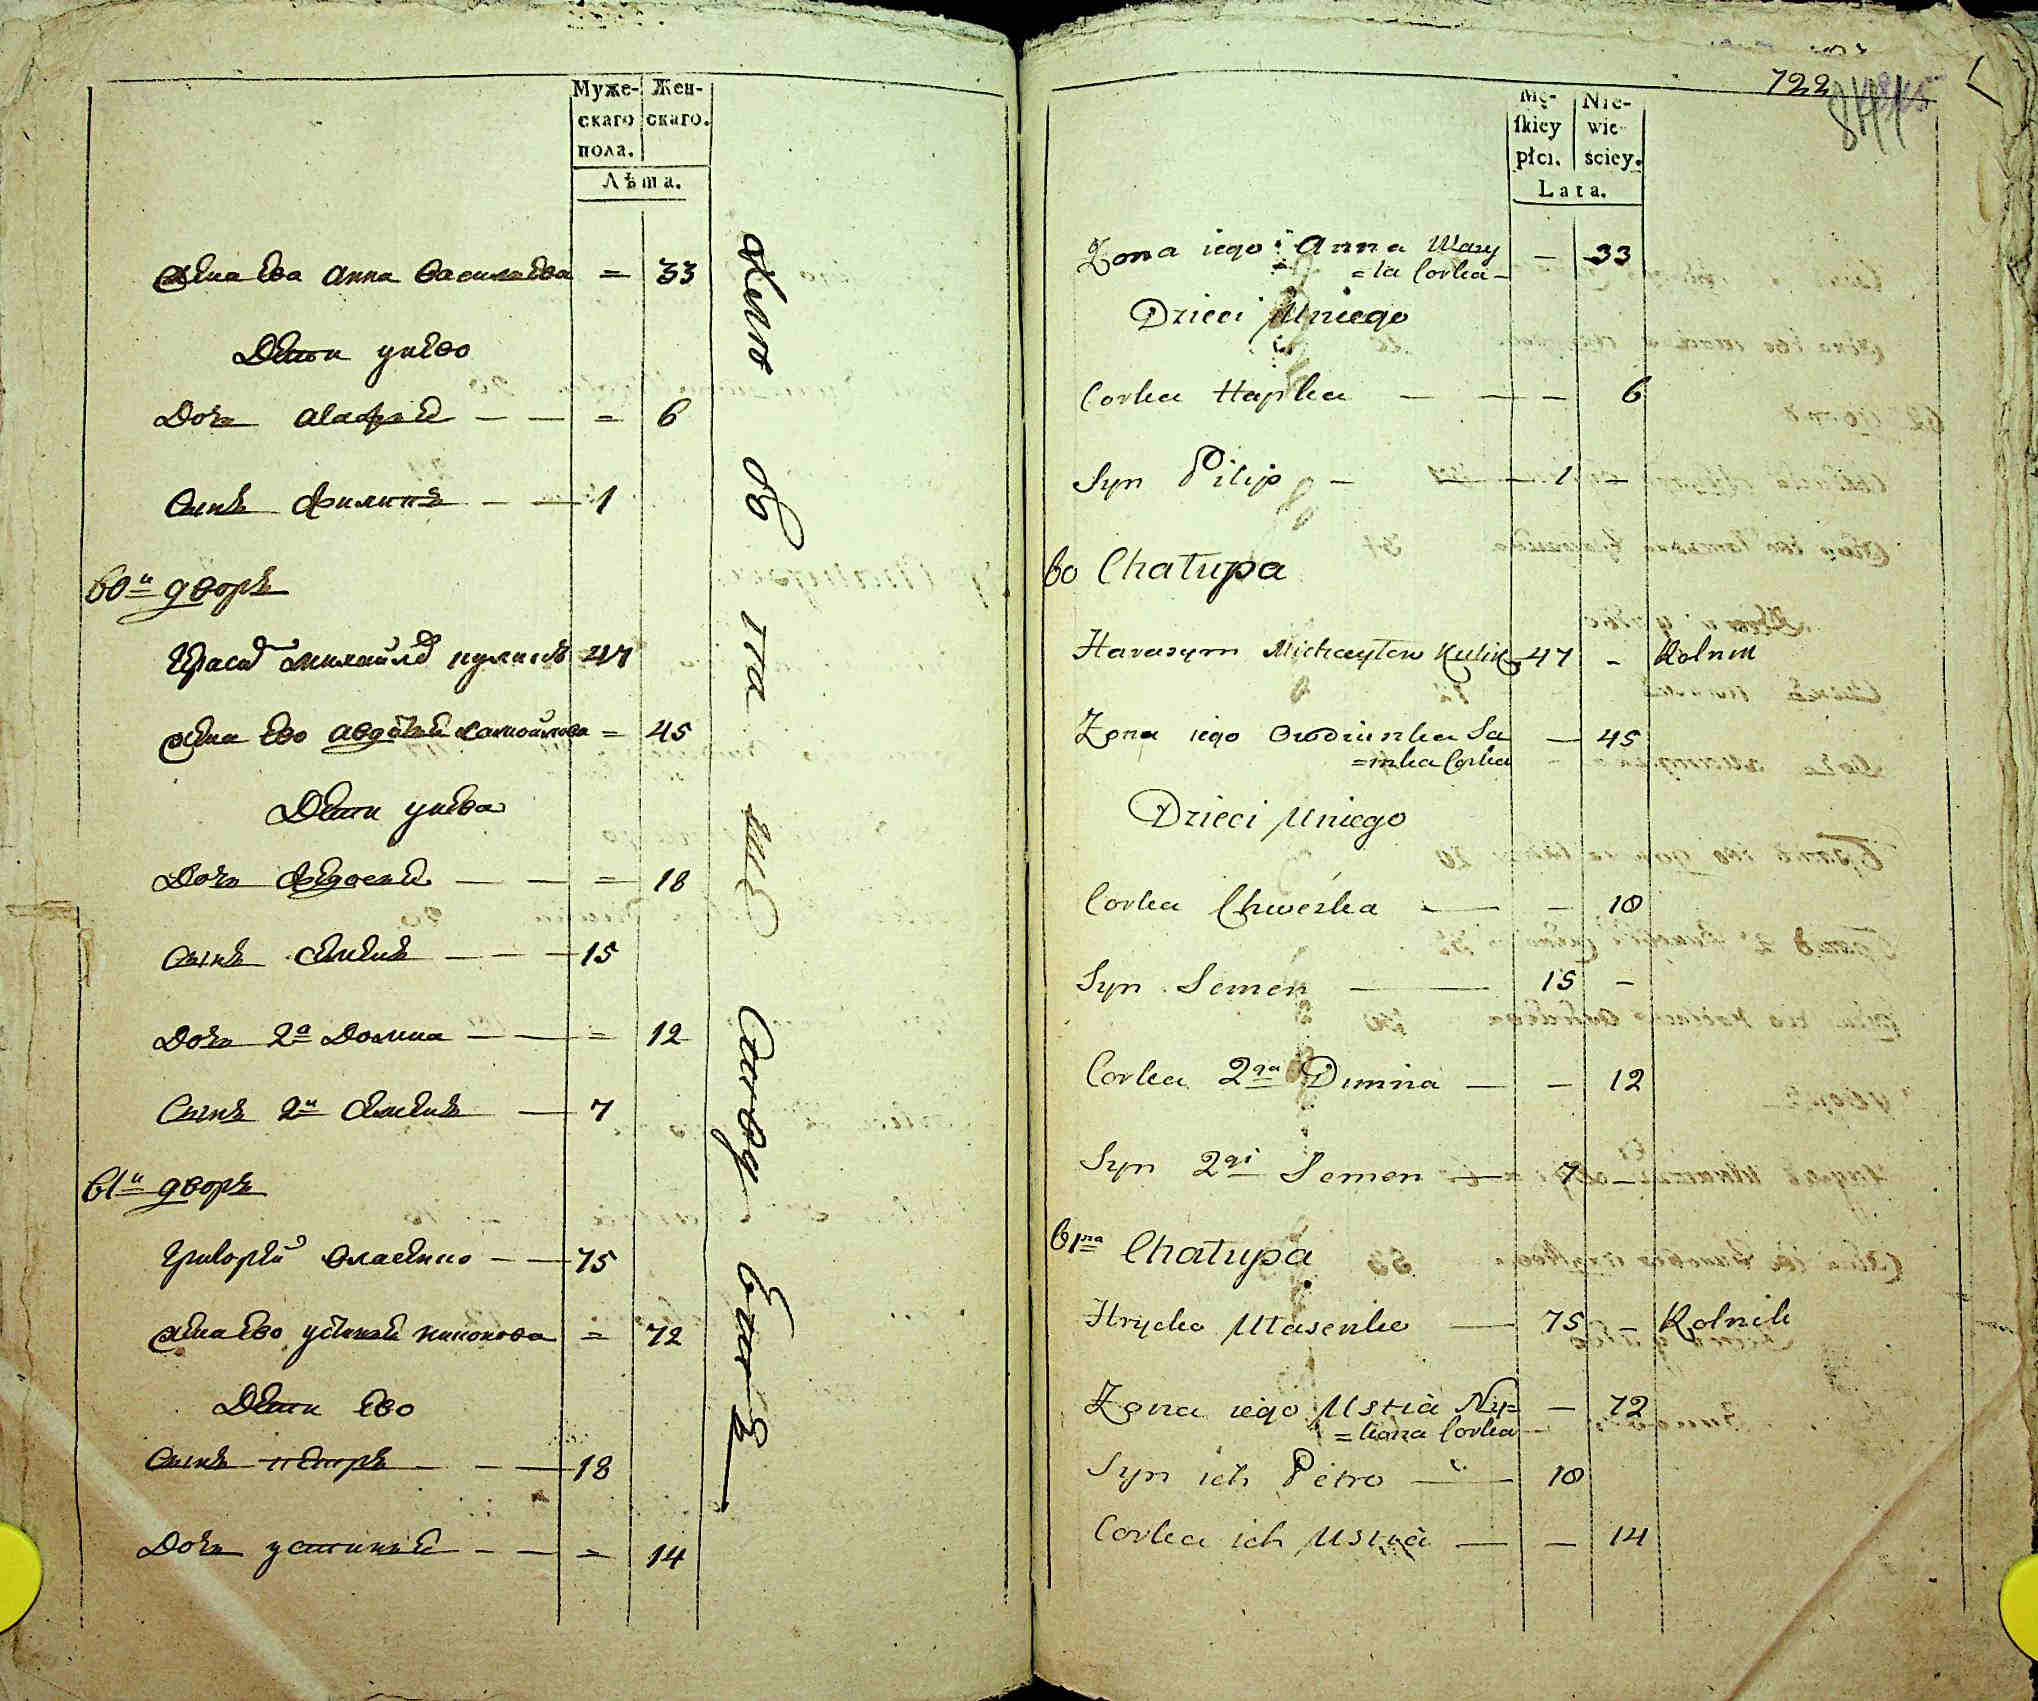 Муже-
скаго
пола.
Жен-
скаго.
Лѣта.
жена ево анна василиева = 33
Дети унево
Дочь = 6
Сынъ филипъ 1
60й дворъ
Герасим михайлов куликъ 47
жена ево авдотия самойлова = 45
Дети унева
Дочь федосия = 18
Сынъ семенъ 15
Дочь 2а Домна = 12
Сынъ 2й семенъ 7
61й дворъ
Григорий власенко 75
жена ево устиния никонова = 72
Дети ево
Сынъ петръ 18
Дочь устиния = 14
722
Mę-
skiey
płci.
Nie-
wie-
sciey.
Lata.
Zona iego Anna Wasy
=la Corka – 33
Dzieci Uniego
Corka Hapka 6
Syn Pilip 1 –
60 Chatupa
Harasym Michayłow Kulik 47 – Rolnik
Zona iego Owdiunka Sa
=mka Corka – 45
Dzieci Uniego
Corka Chweśka – 18
Syn Semen 15 –
Corka 2ga Dumna – 12
Syn 2gi Semen 7 –
61na Chatupa
Hrycko Ułasenko 75 – Rolnik
Zona iego Ustia Ny=
=kona Corka – 72
Syn ich Petro 18
Corka ich Ustia – 14